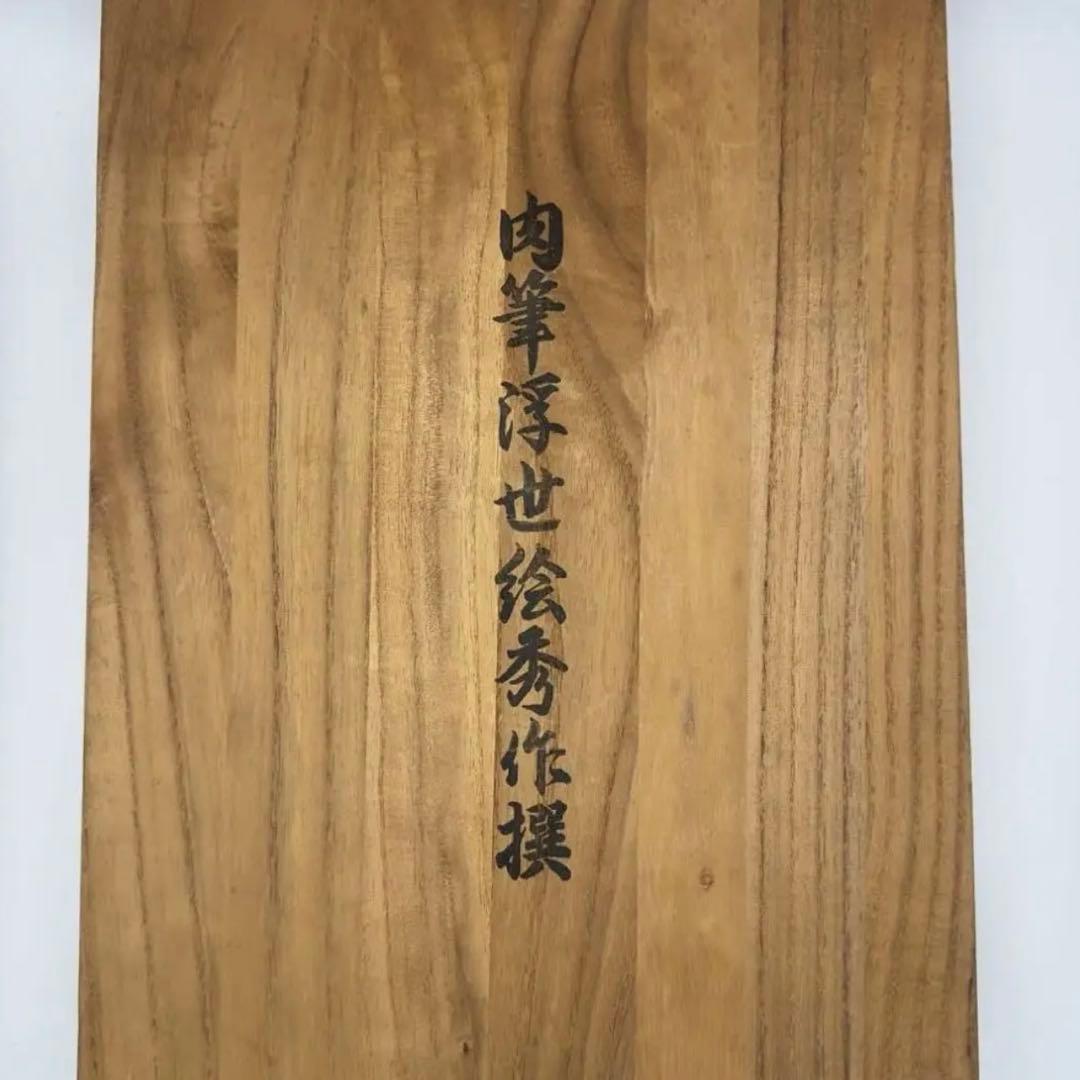 肉筆浮世絵秀作撰